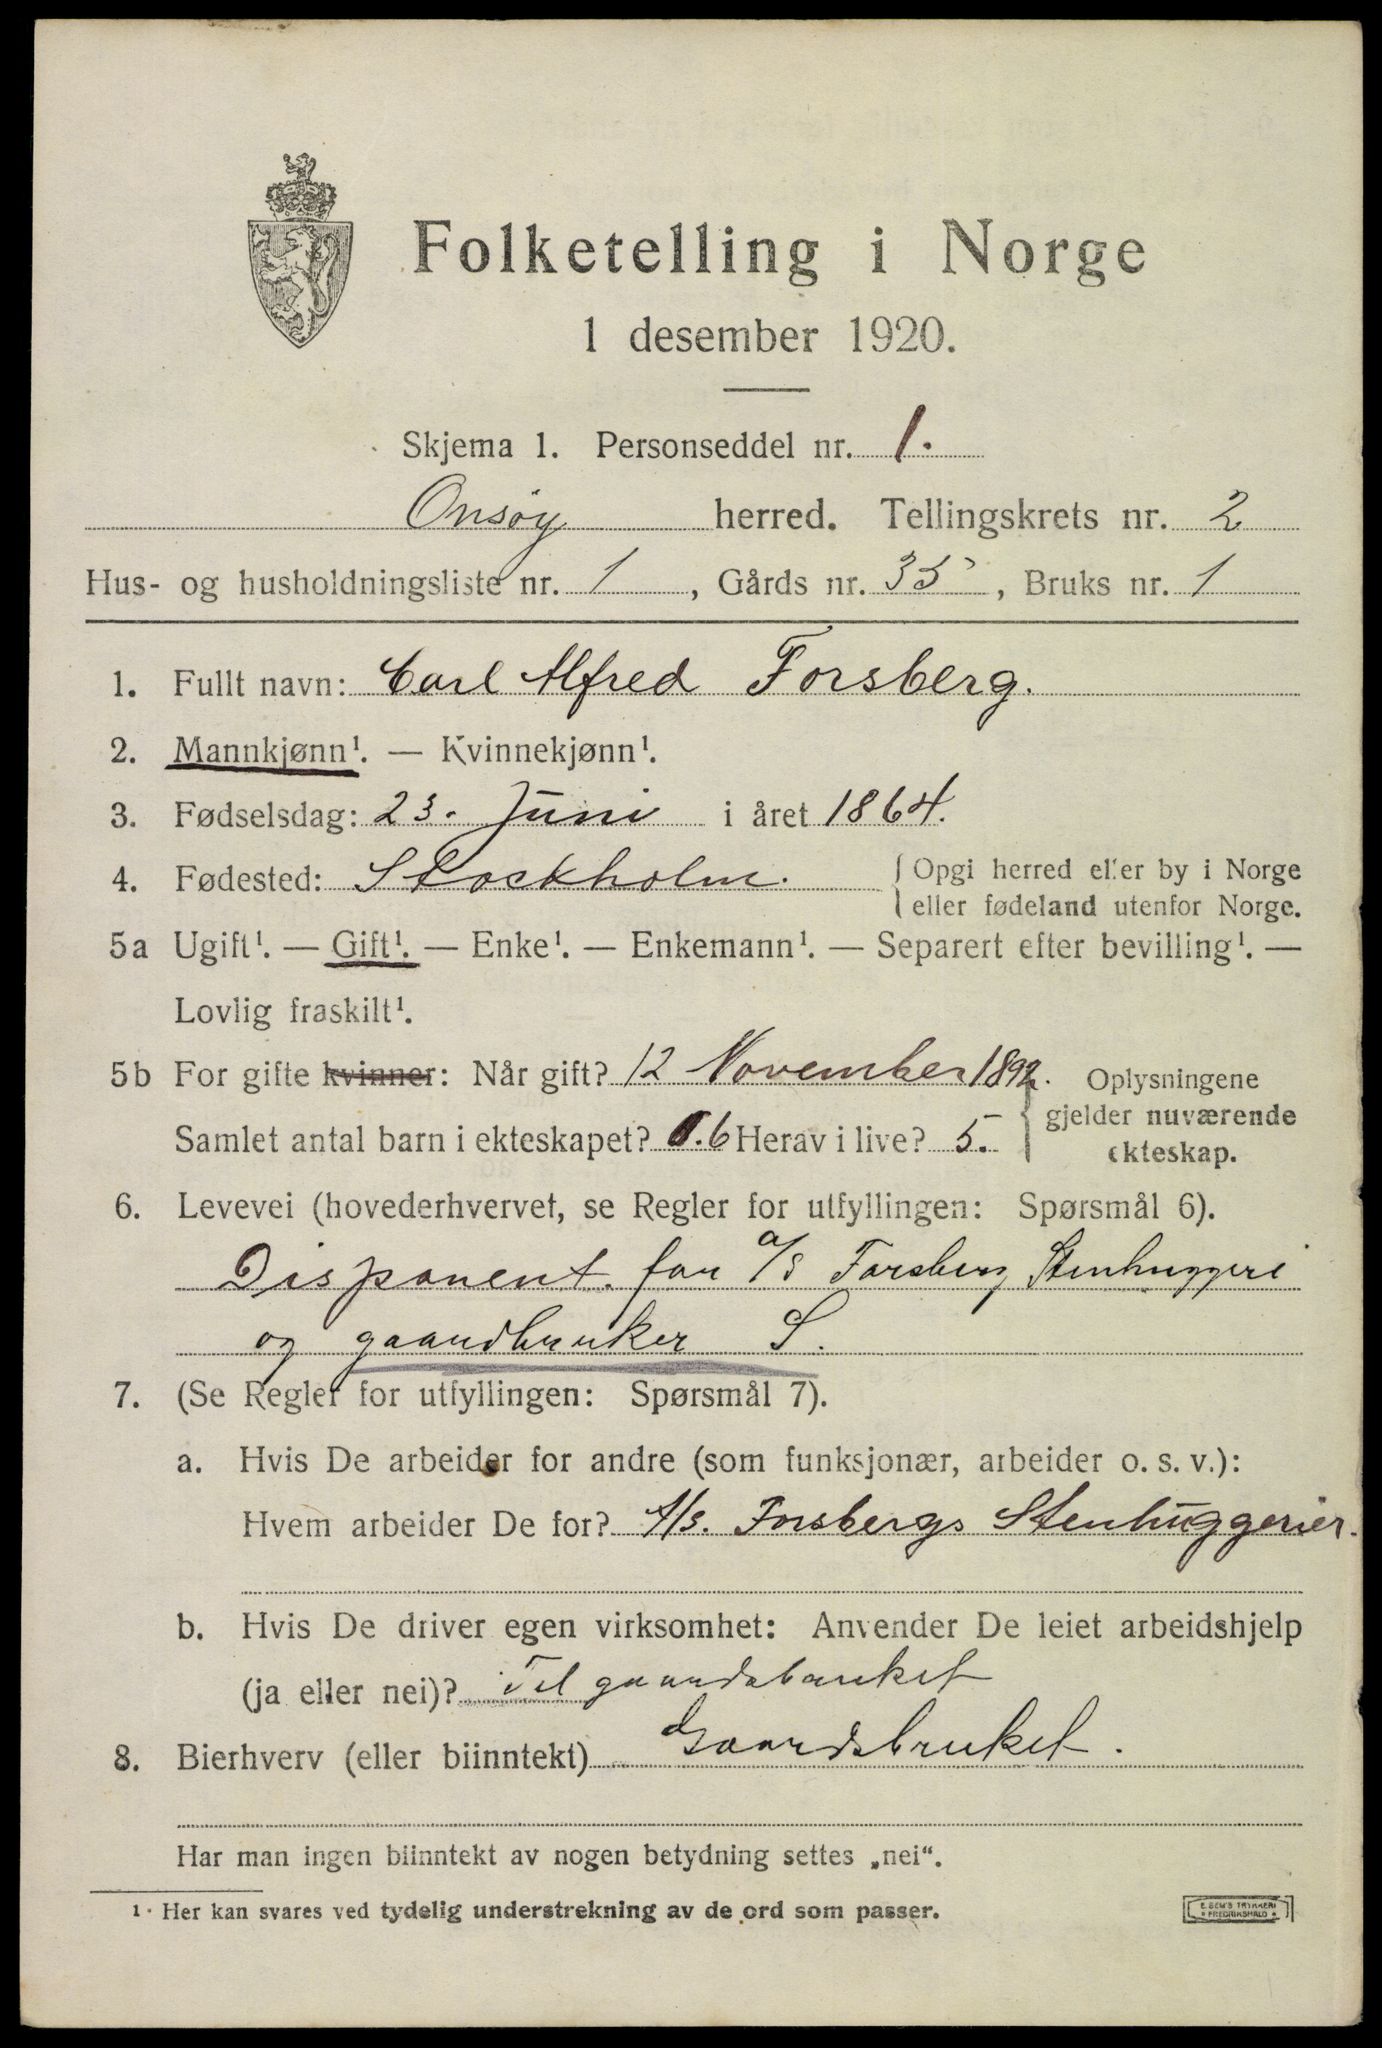 Folketelling i Norge
1 desember 1920.
Skjema 1. Personseddel nr. 1.
Onsøy herred. Tellingskrets nr. 2
Hus- og husholdningsliste nr. 1, Gårds nr. 35, Bruks nr. 1
1. Fullt navn: Carl Alfred Forsberg.
2. Mannkjønn¹. — Kvinnekjønn¹.
3. Fødselsdag: 23. Juni i året 1864.
4. Fødested: Stockholm. { Opgi herred eller by i Norge
eller fødeland utenfor Norge.
5a Ugift¹. — Gift¹. — Enke¹. — Enkemann¹. — Separert efter bevilling¹. —
Lovlig fraskilt¹.
5b For gifte kvinner: Når gift? 12 November 1892. Oplysningene
gjelder nuværende
Samlet antal barn i ekteskapet? 6 Herav i live? 5. ekteskap.
6. Levevei (hovederhvervet, se Regler for utfyllingen: Spørsmål 6).
Disponent. for a/s Forsberg Stenhuggeri
og gaardbruker S.
7. (Se Regler for utfyllingen: Spørsmål 7).
a. Hvis De arbeider for andre (som funksjonær, arbeider o. s. v.):
Hvem arbeider De for? A/s. Forsbergs Stenhuggerier.
b. Hvis De driver egen virksomhet: Anvender De leiet arbeidshjelp
(ja eller nei)? Til gaardsbruket
8. Bierhverv (eller biinntekt) Gaardsbruket.
Har man ingen biinntekt av nogen betydning settes „nei“.
1. Her kan svares ved tydelig understrekning av de ord som passer.
E. SEM'S TRYKKERI
* FREDRIKSHALD *